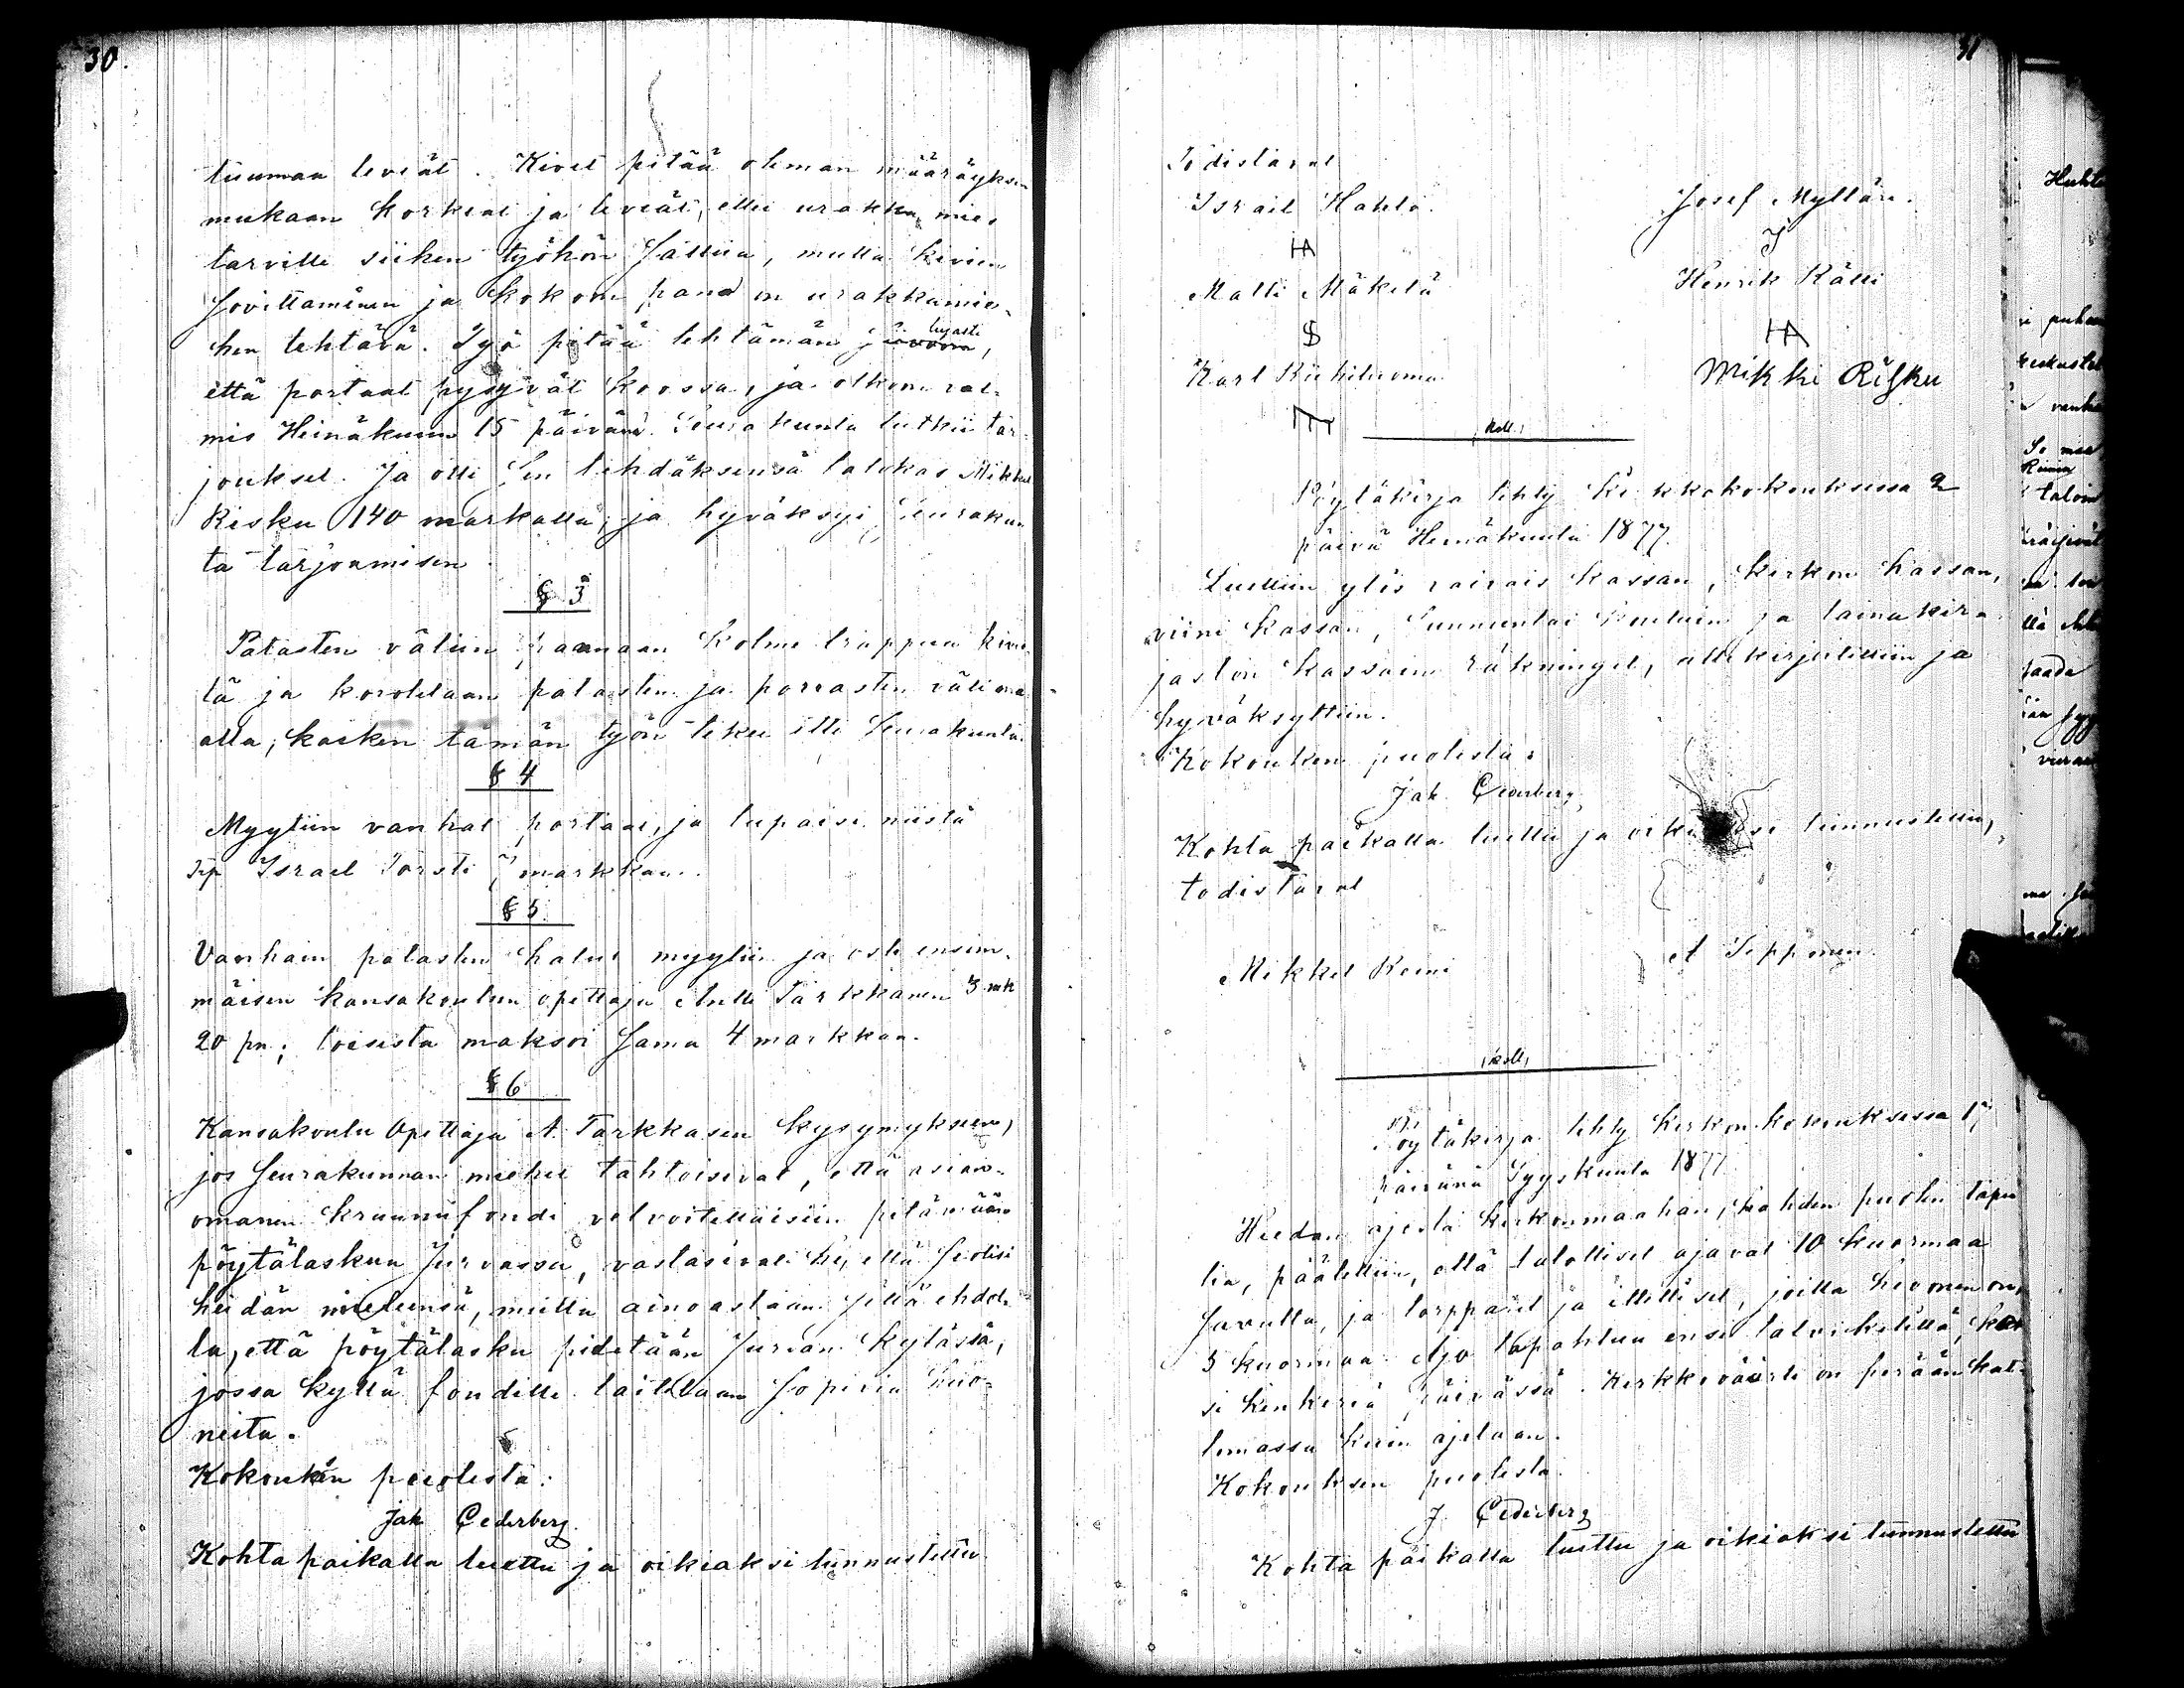 30.
tuuman leveät. Kivet pitää oleman määräyksen
mukaan korkeat ja leveät, ellei urakka mies
tarvitte siihen työhön hälliä, mutta kivien
sovittaminen ja kokoon pano on urakkamie-
hen tehtävä. Työ pitää tehtämän lujasti,
että portaat pysyvät koossa, ja olkoon val-
mis Heinäkuun 15 päivänä. Seurakunta tutkii tar-
joukset. Ja otti sen tehdäksensä talokas Mikkel
Risku 140 markalla, ja hyväksyi Seurakun
ta tarjoamisen.
§ 3
Patasten väliin pannaan kolme trappua kives-
tä ja korotetaan patasten ja porrasten väli maa
alla, kaiken tämän työn tekee itte Seurakunta.
§ 4
Myytiin vanhat portaat, ja lupaisi niistä
Israel Torsti 7 markkaa.
§ 5
Vanhain patasten halut myytiin ja osti ensim-
mäisen kansakoulun opettaja Antti Tarkkanen 3 mk
20 pn; toisista maksoi sama 4 markkaa.
§ 6
Kansakoulu Opettaja A. Tarkkasen kysymykseen,
jos seurakunnan miehet tahtoisivat, että asian-
omanen kraunufondi velvoitettaisiin pitämään
pöytälaskun Jurvassa, vastasivat he, että se olisi
heidän mieleensä, mutta ainoastaan sillä ehdol-
la, että pöytälasku pidetään Jurvan kylässä,
jossa kyllä fondille laitetaan sopivia huo-
neita.
Kokouksen puolesta:
Jak Cederberg.
Kohta paikalla luettu ja oikiaksi tunnustettu
31
Todistavat
Israil Hahto.
Josef Mylläri.
HA
J
Matti Mäkelä
Henrik Rätti
HA
Karl Kiukiluoma
Mikki Risku
koll.
Pöytäkirja tehty kirkkokokouksessa 2
päivä Heinäkuuta 1877.
Luettiin ylös vaivais kassan, kirkon kassan,
viini kassan, Sunnuntai koulun ja lainakirja-
jaston kassain räkningit, allekirjoitettiin ja
hyväksyttiin.
Kokouksen puolesta:
Jak. Cederberg.
Kohta paikalla luettu ja tunnustettiin,
todistavat
Mikkel Reini
A Seppänen.
koll.
Pöytäkirja tehty kirkon kokouksessa 17
päivänä Syyskuuta 1877
Hiedan ajosta kirkonmaahan, kahden puolen tapu
lia, päätettiin, että talolliset ajavat 10 kuormaa
savulta, ja torpparit ja itelliset, joilla hevonen on,
5 kuormaa. Ajo tapahtuu ensi talvikelillä, kak
si kinkeriä päivässä. Kirkkoväärti on perään kat-
tomassa kuin ajetaan.
Kokouksen puolesta.
J. Cederberg
Kohta paikalla luettu ja oikiaksi tunnustettu